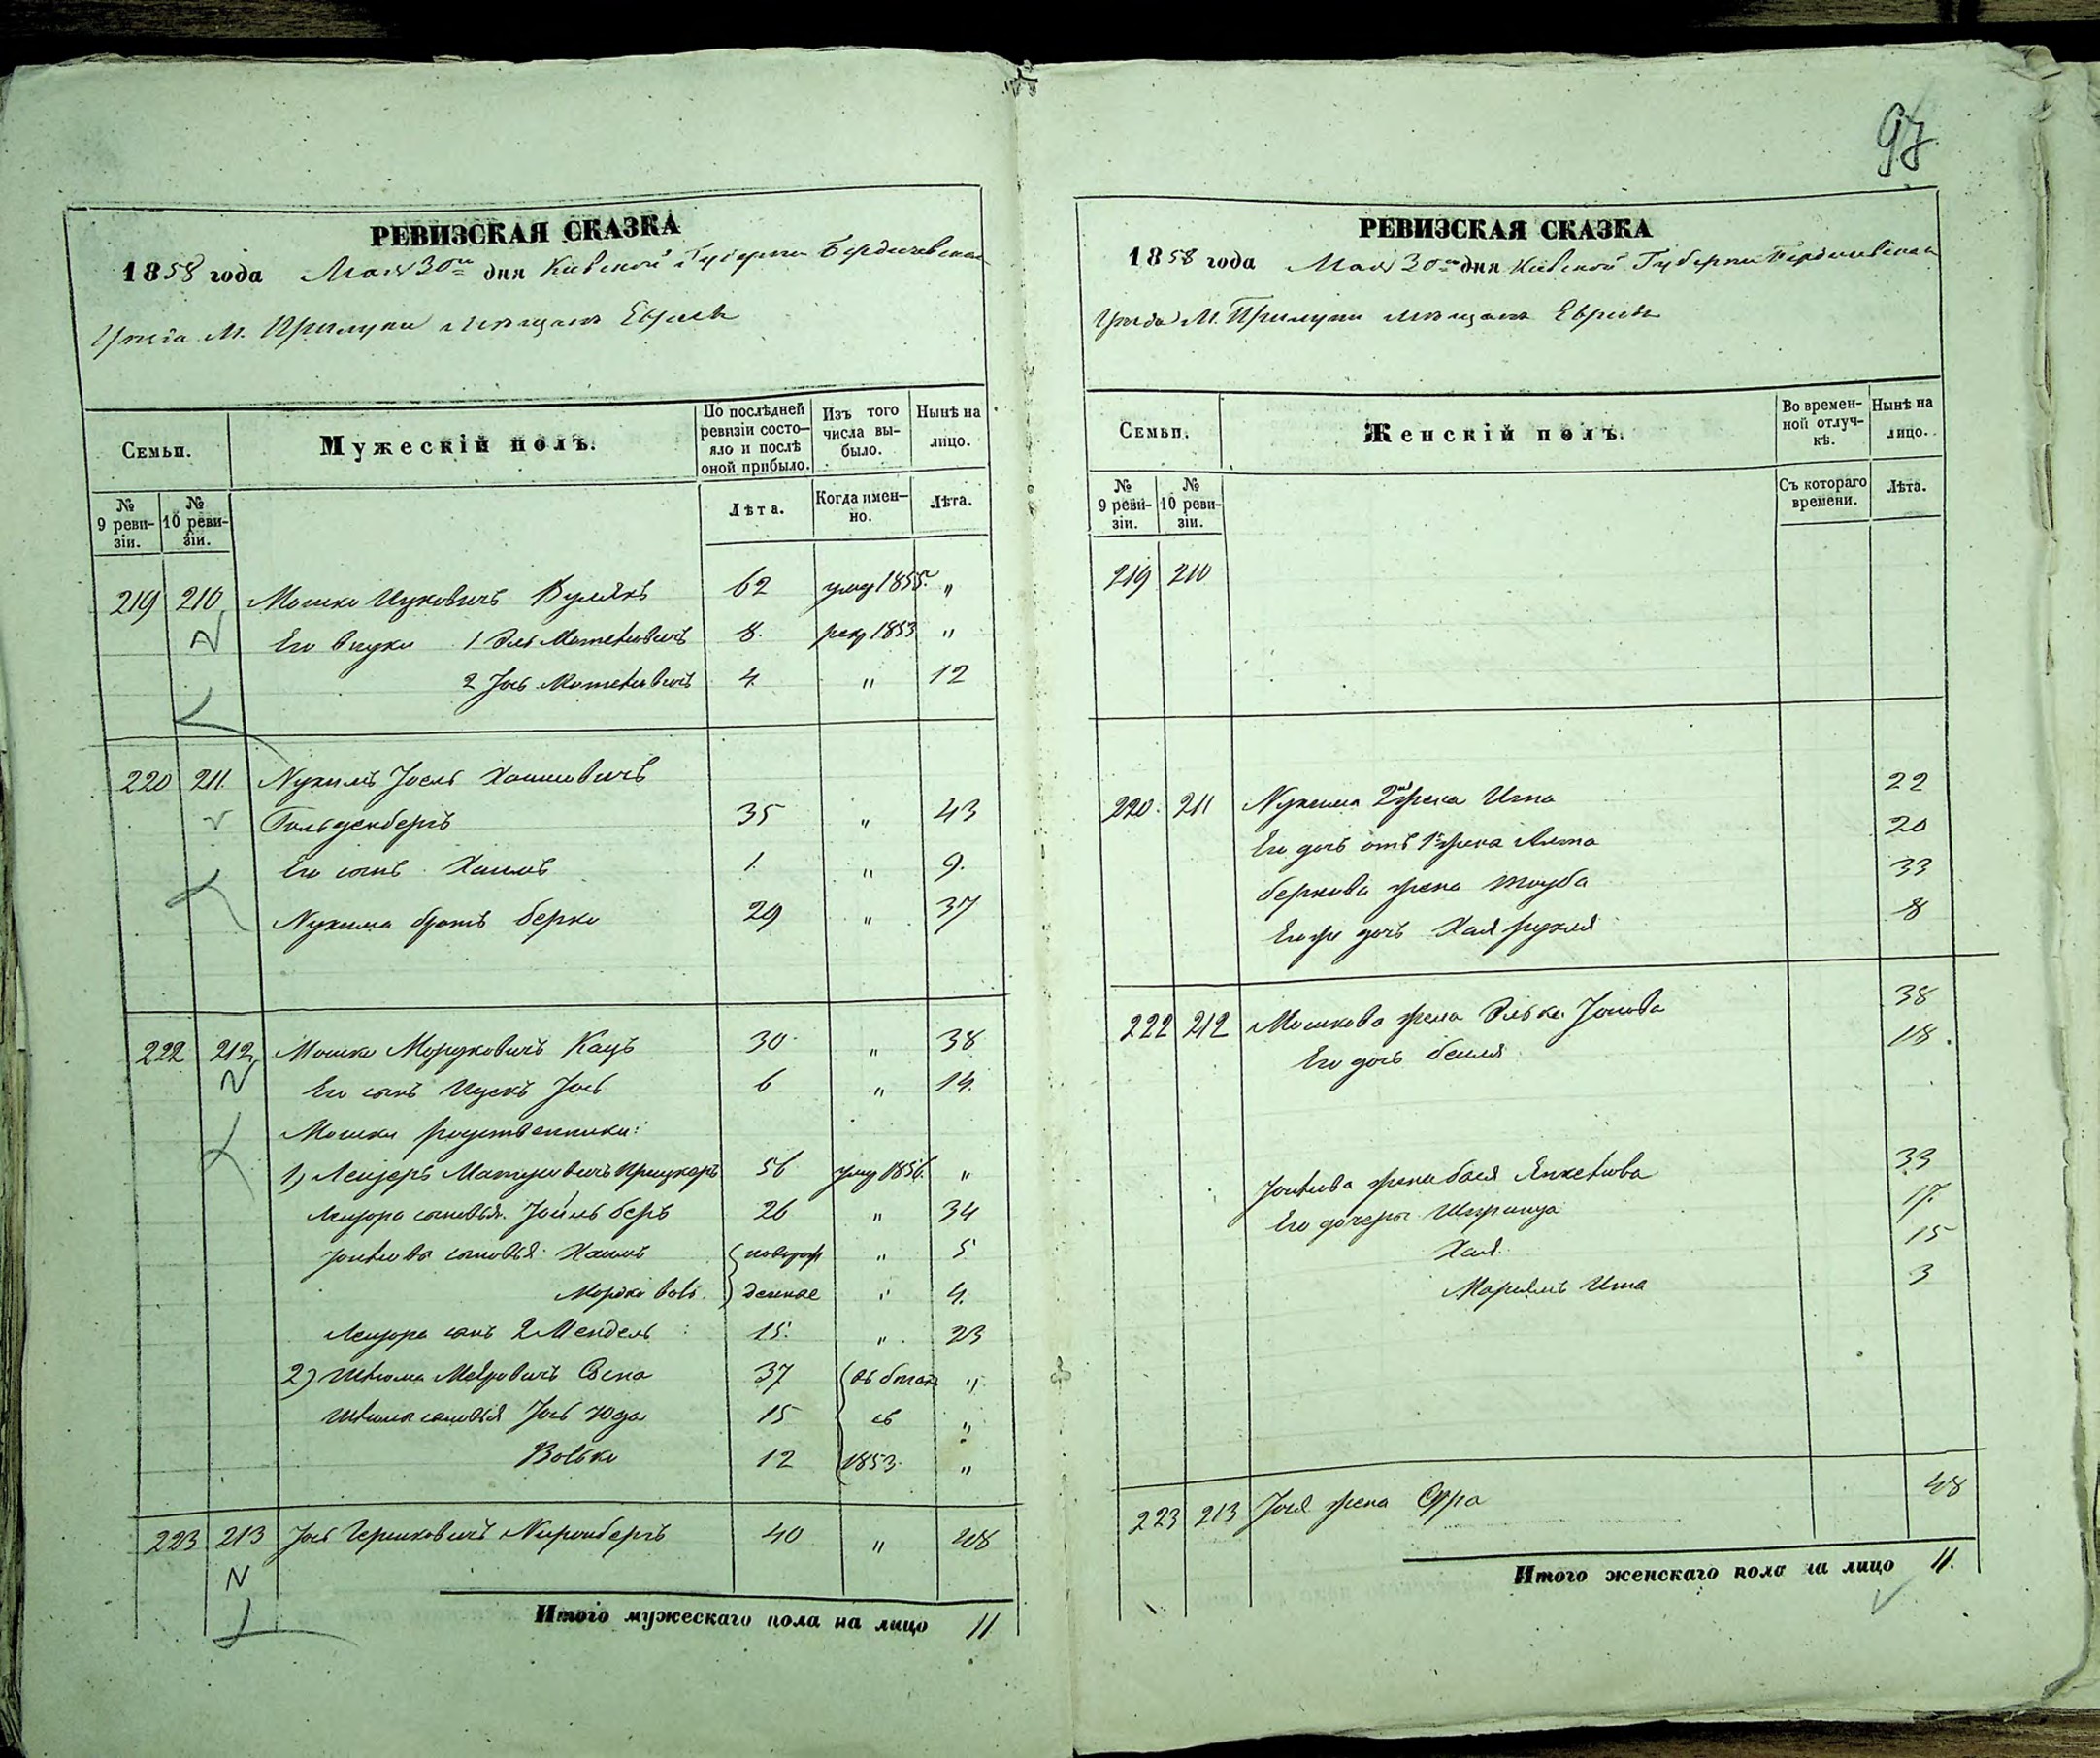 97
РЕВИЗСКАЯ СКАЗКА
1858 года Мая 30го дня Кіевской Губерніи Бердичевскаго
Уѣзда М. Прилуки мѣщанъ Евреевъ
Семьи.
Мужескій полъ.
По послѣдней ревизіи состояло и послѣ оной прибыло.
Изъ того числа выбыло.
Нынѣ на лицо.
№ 9 ревизіи.
№ 10 ревизіи.
Лѣта.
Когда именно.
Лѣта.
219 210 Мошко Ицковичъ 62 умер 1855. "
Его внуки 1 Эль Мотелювичъ 8. рек 1853 "
2 Јось Мотелювичъ 4 " 12
220 211. Нухимъ Јосль Хаимовичъ
Гольденбергъ 35 " 43
Его сынъ Хаимъ 1 " 9.
Нухима братъ Берко 29 " 37
222 212 Мошко Мордковичъ Кацъ 30 " 38
Его сынъ Ицекъ Јось 6 " 14.
Мошки родственники:
1) Лейзеръ 56 умер 1856. "
Лейзора сыновья. Јойль Беръ 26 " 34
сыновья Хаимъ новорож " 5
Мордко Воль денные " 4.
Лейзора сынъ 2 Мендель 15. " 23
2) Шлома Сосна 37 въ бѣгахъ "
Шломы сыновья Јось Юда 15 съ "
Волько 12 1853 "
223 213 Јось Гершковичъ Ниренбергъ 40 " 48
Итого мужескаго пола на лицо 11
РЕВИЗСКАЯ СКАЗКА
1858 года Мая 30го дня Кіевской Губерніи Бердичевскаго
Уѣзда М. Прилуки мѣщанъ Евреевъ
Семьи.
Женскій полъ.
Во временной отлучкѣ.
Нынѣ на лицо.
№ 9 ревизіи.
№ 10 ревизіи.
Съ котораго времени.
Лѣта.
219 210
220. 211 Нухима 2я жена Ита 22
Его дочь отъ 1й жена 20
Беркова жена Тауба 33
Его же дочь Хая Рухля 8
222 212 Мошкова жена Элька Јосиова 38
Его дочь Бейля 18.
жена Бася Янкелова 33
Его дочери Шпринца 17.
Хая. 15
Маріямъ Ита 3
223 213 Јося жена Сура 48
Итого женскаго пола на лицо 11.